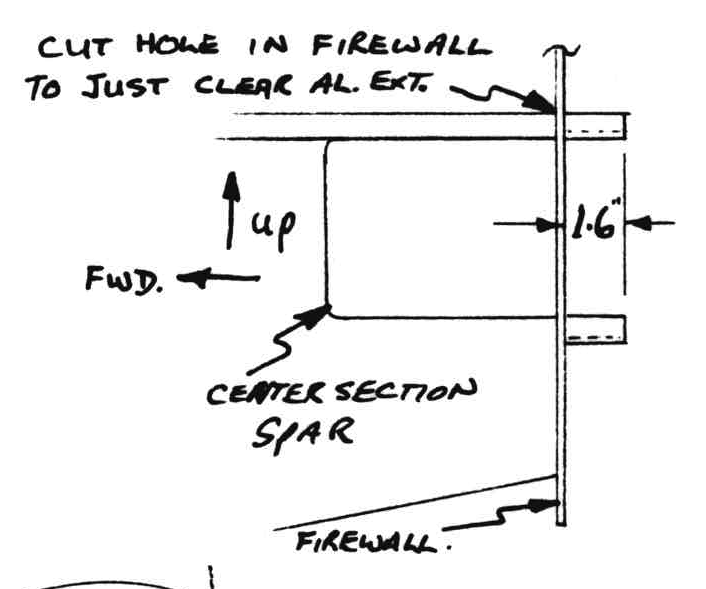 CUT HOLE IN FIREWALL
TO JUST CLEAR AL. EXT.
up
1.6"
FWD.
CENTER SECTION
SPAR
FIREWALL.